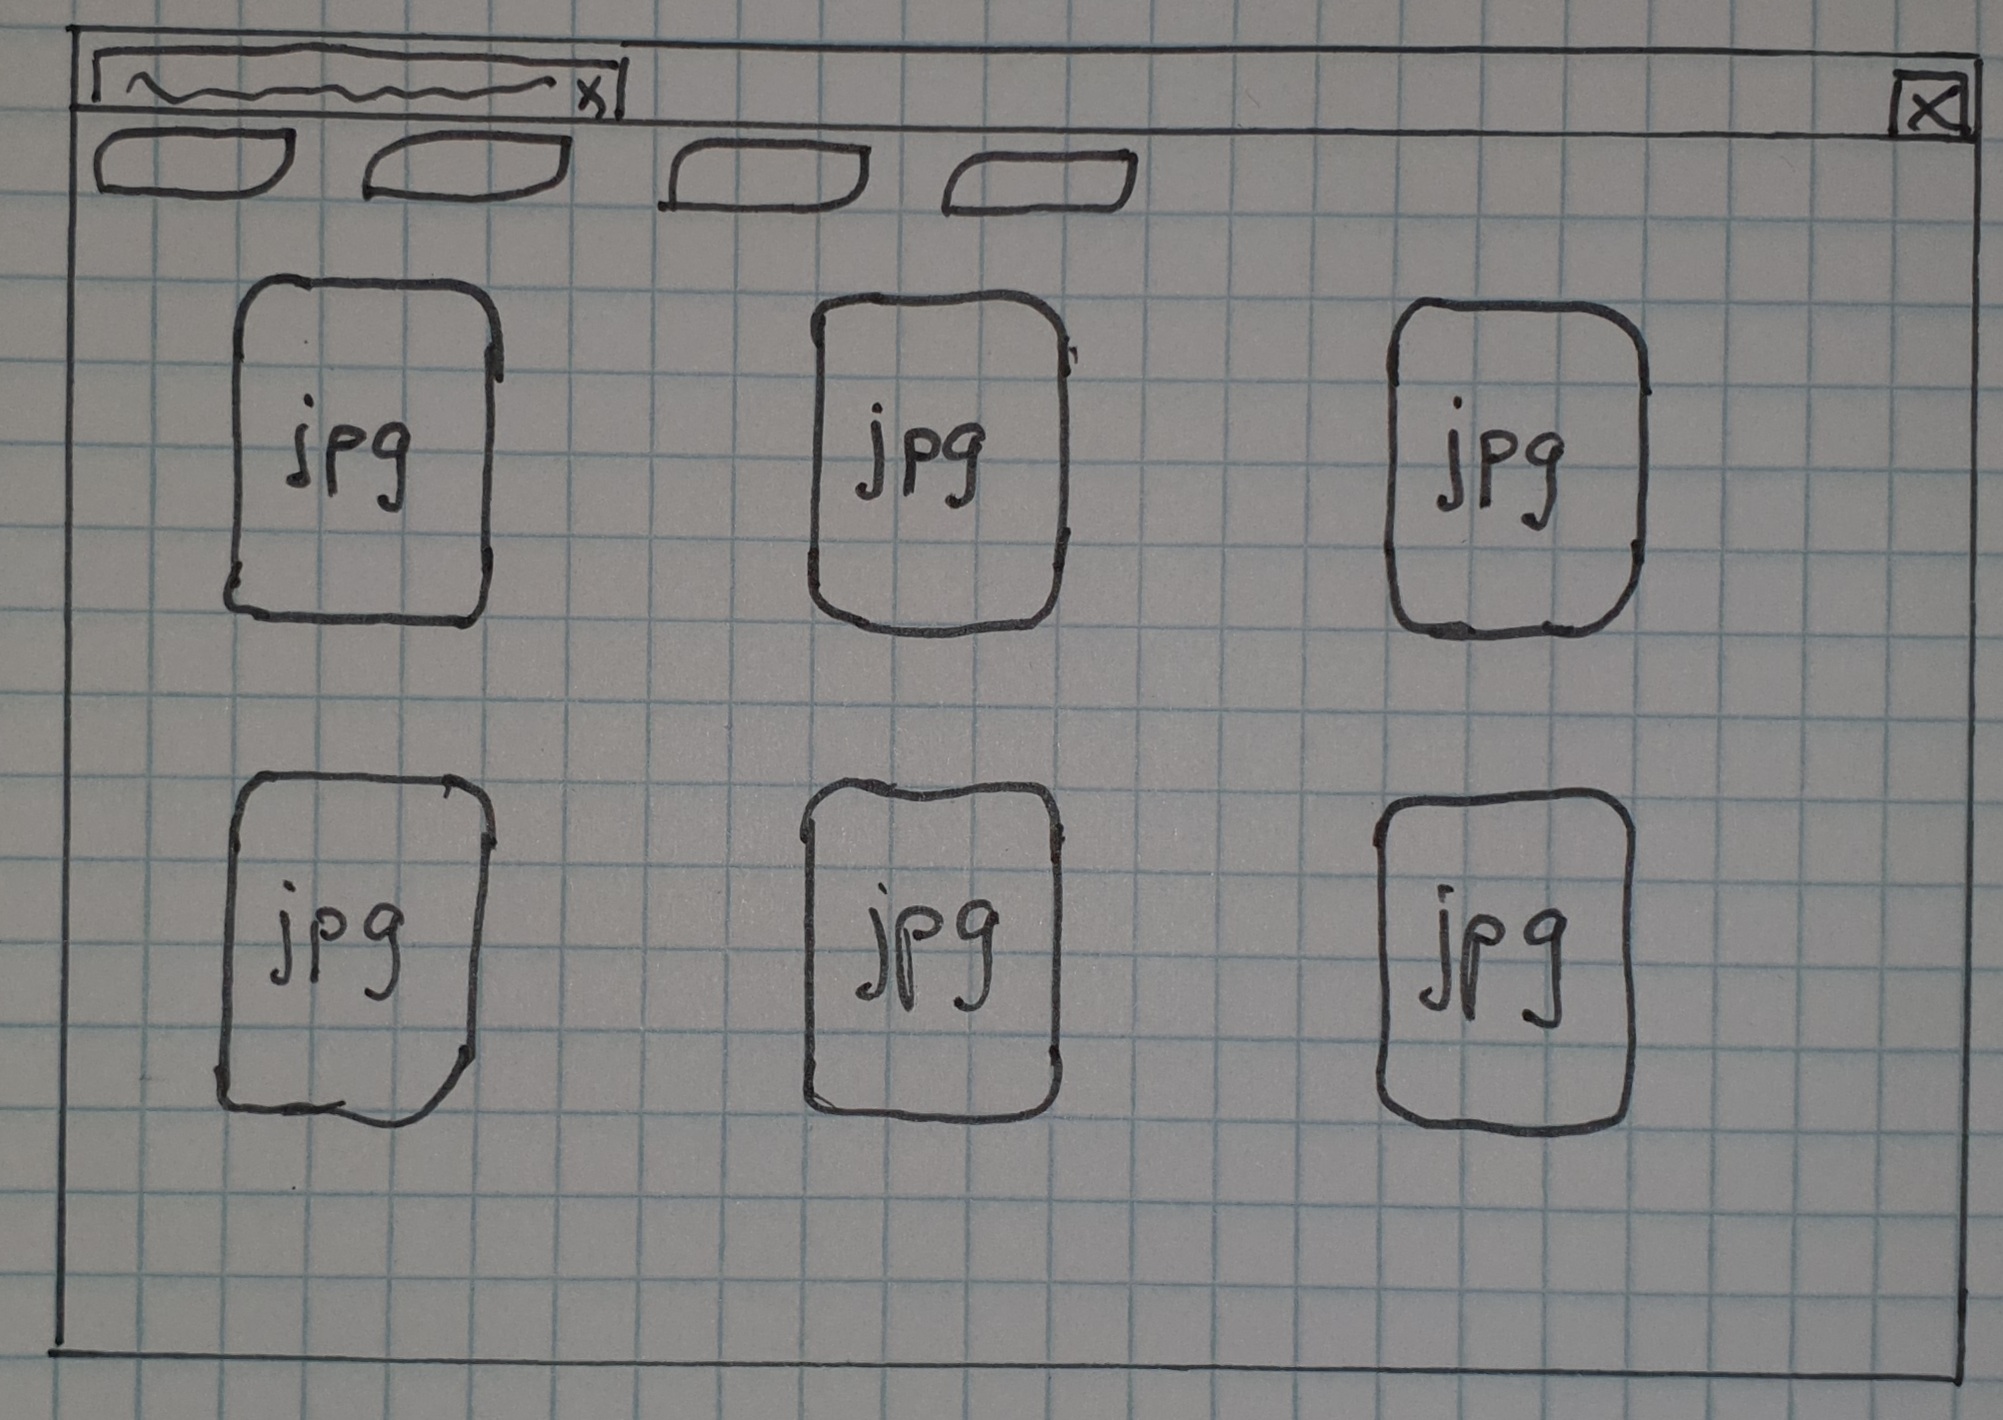 x
X
jpg jpg jpg
jpg jpg jpg